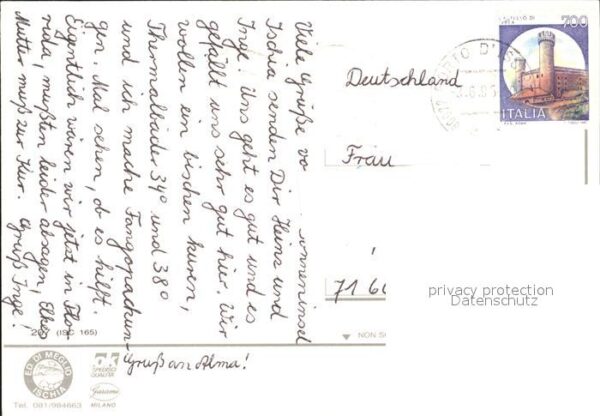 Viele Grüße vo
onneninsel
Ischia senden Dir Heinz und
Inge. Uns geht es gut und es
gefällt uns sehr gut hier. Wir
wollen ein bischen kuren,
Thermalbäder 34° und 38°
und ich mache Fangopackun-
gen. Mal sehen, ob es hilft.
Eigentlich wären wir jetzt in Flo-
rida, mußten leider absagen, Elkes
Mutter muß zur Kur. Gruß Inge!
Gruß an Alma!
Deutschland
Frau
71 6
700
ITALIA
privacy protection
Datenschutz
(ISC 165)
NON S
ED. DI MEGLIO
ISCHIA
Tel. 081/984663
MILANO